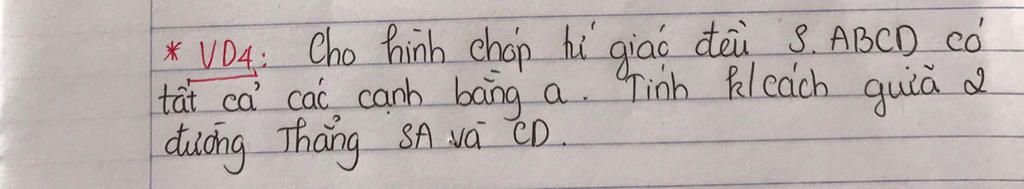 * VD4: Cho hình chóp tứ giác đều S. ABCD có
tất cả các cạnh bằng a. Tính k/cách giữa 2
đường Thẳng SA và CD.